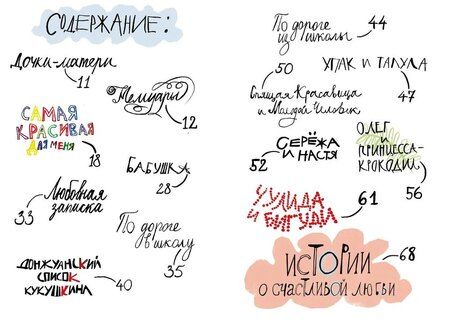 СОДЕРЖАНИЕ:
Дочки-матери
11
Мемуары
12
САМАЯ
КРАСИВАЯ
ДЛЯ МЕНЯ
18
БАБУШКА
28
Любовная
записка
33
По дороге
в школу
35
ДОНЖУАНСКИЙ
СПИСОК
КУКУШКИНА
40
По дороге
из школы
44
УПАК И ТАПУЛА
47
50
Спящая Красавица
и Молодой Человек
СЕРЁЖА
И НАСТЯ
52
ОЛЕГ
И
ПРИНЦЕССА-
КРОКОДИЛ
56
ЧУЛИДА
И БИГУДИЛ
61
ИСТОРИИ
О СЧАСТЛИВОЙ ЛЮБВИ
68